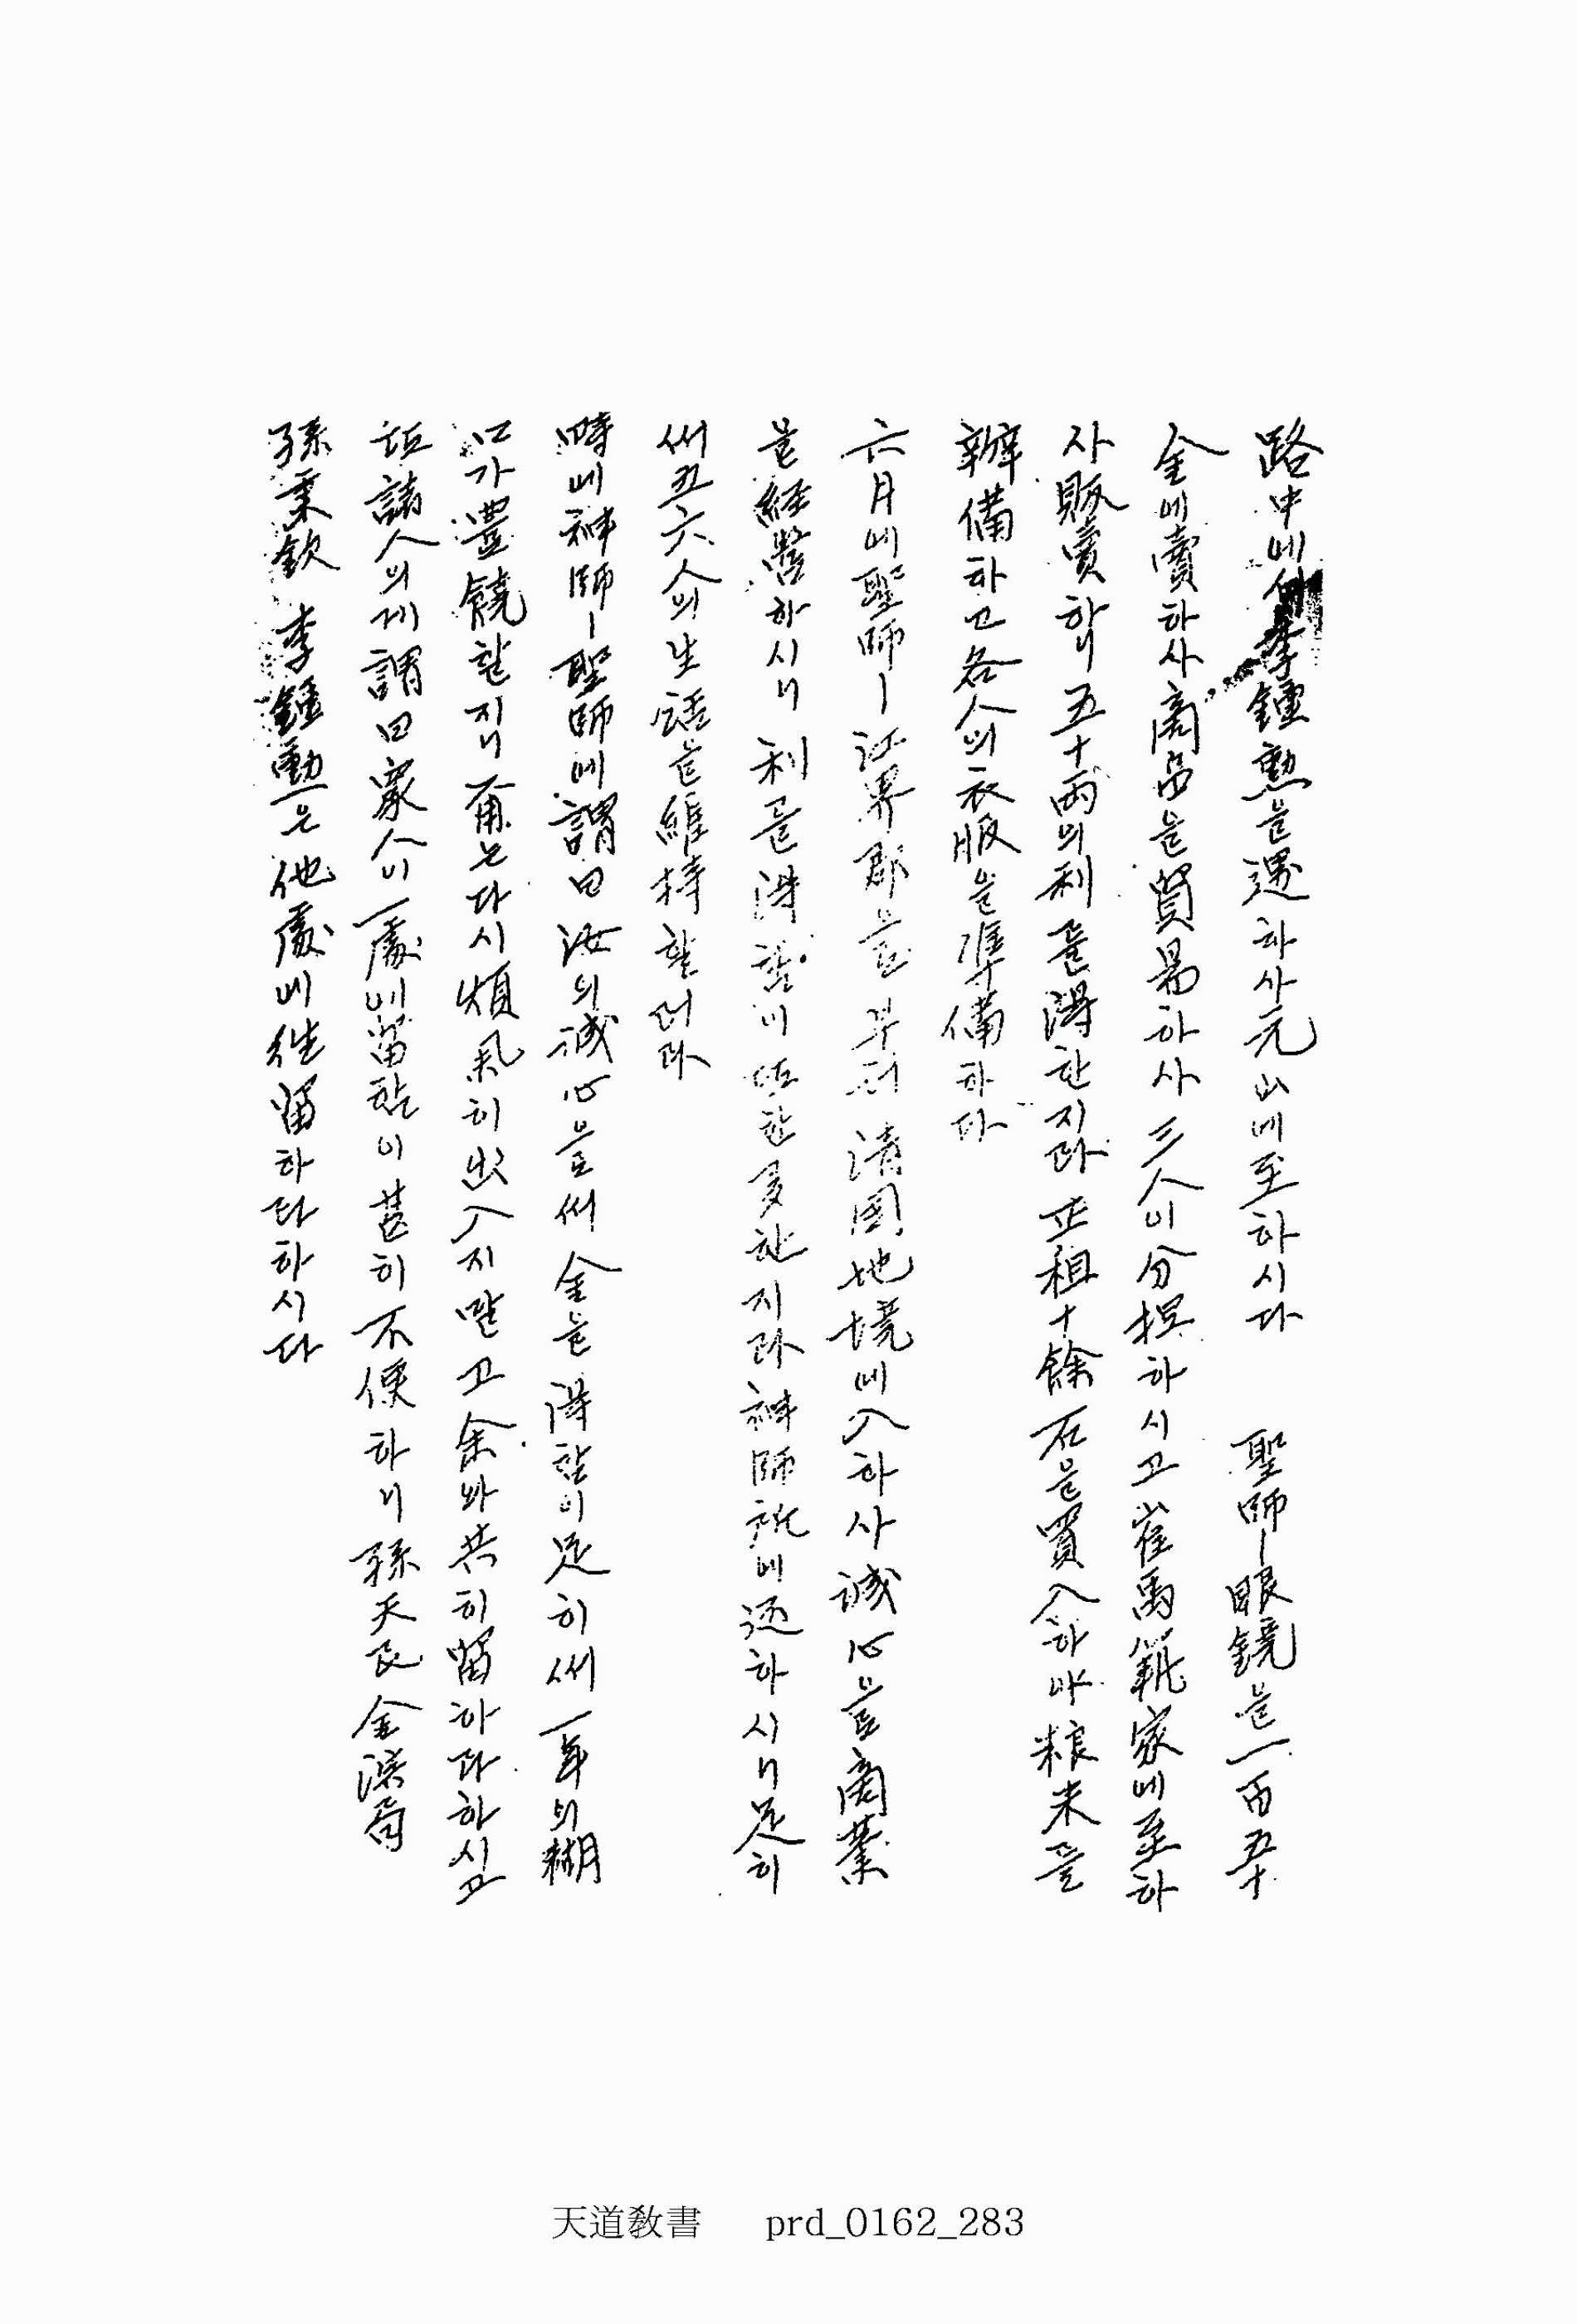 路中에 李鍾勲을 遇하사 元山에 至하시다 聖師ㅣ 眼鏡을 一百五十
金에 賣하사 商品을 貿易하사 三人이 分担하시고 崔禹範家에 至하
사 販賣하니 五十両의 利를 得한지라 正租十餘石을 買入하야 粮米를
辦備하고 各人의 衣服을 準備하다
六月에 聖師ㅣ 江界郡을 부터 清国地境에 入하사 誠心으로 商業
을 経営하시니 利를 得함이 또한 多한지라 神師宅에 还하시니 足히
써 五六人의 生活을 維持할러라
時에 神師ㅣ 聖師에 謂曰 汝의 誠心으로써 金을 得함이 足히 써 一年의 糊
口가 豊饒할지니 爾는 다시 煩氣히 出入지 말고 余와 共히 留하라 하시고
또 諸人의게 謂曰 衆人이 一處에 留함이 甚히 不便하니 孫天民 金演局
孫秉欽 李鍾勳은 他處에 往留하라 하시다
天道教書 prd_0162_283